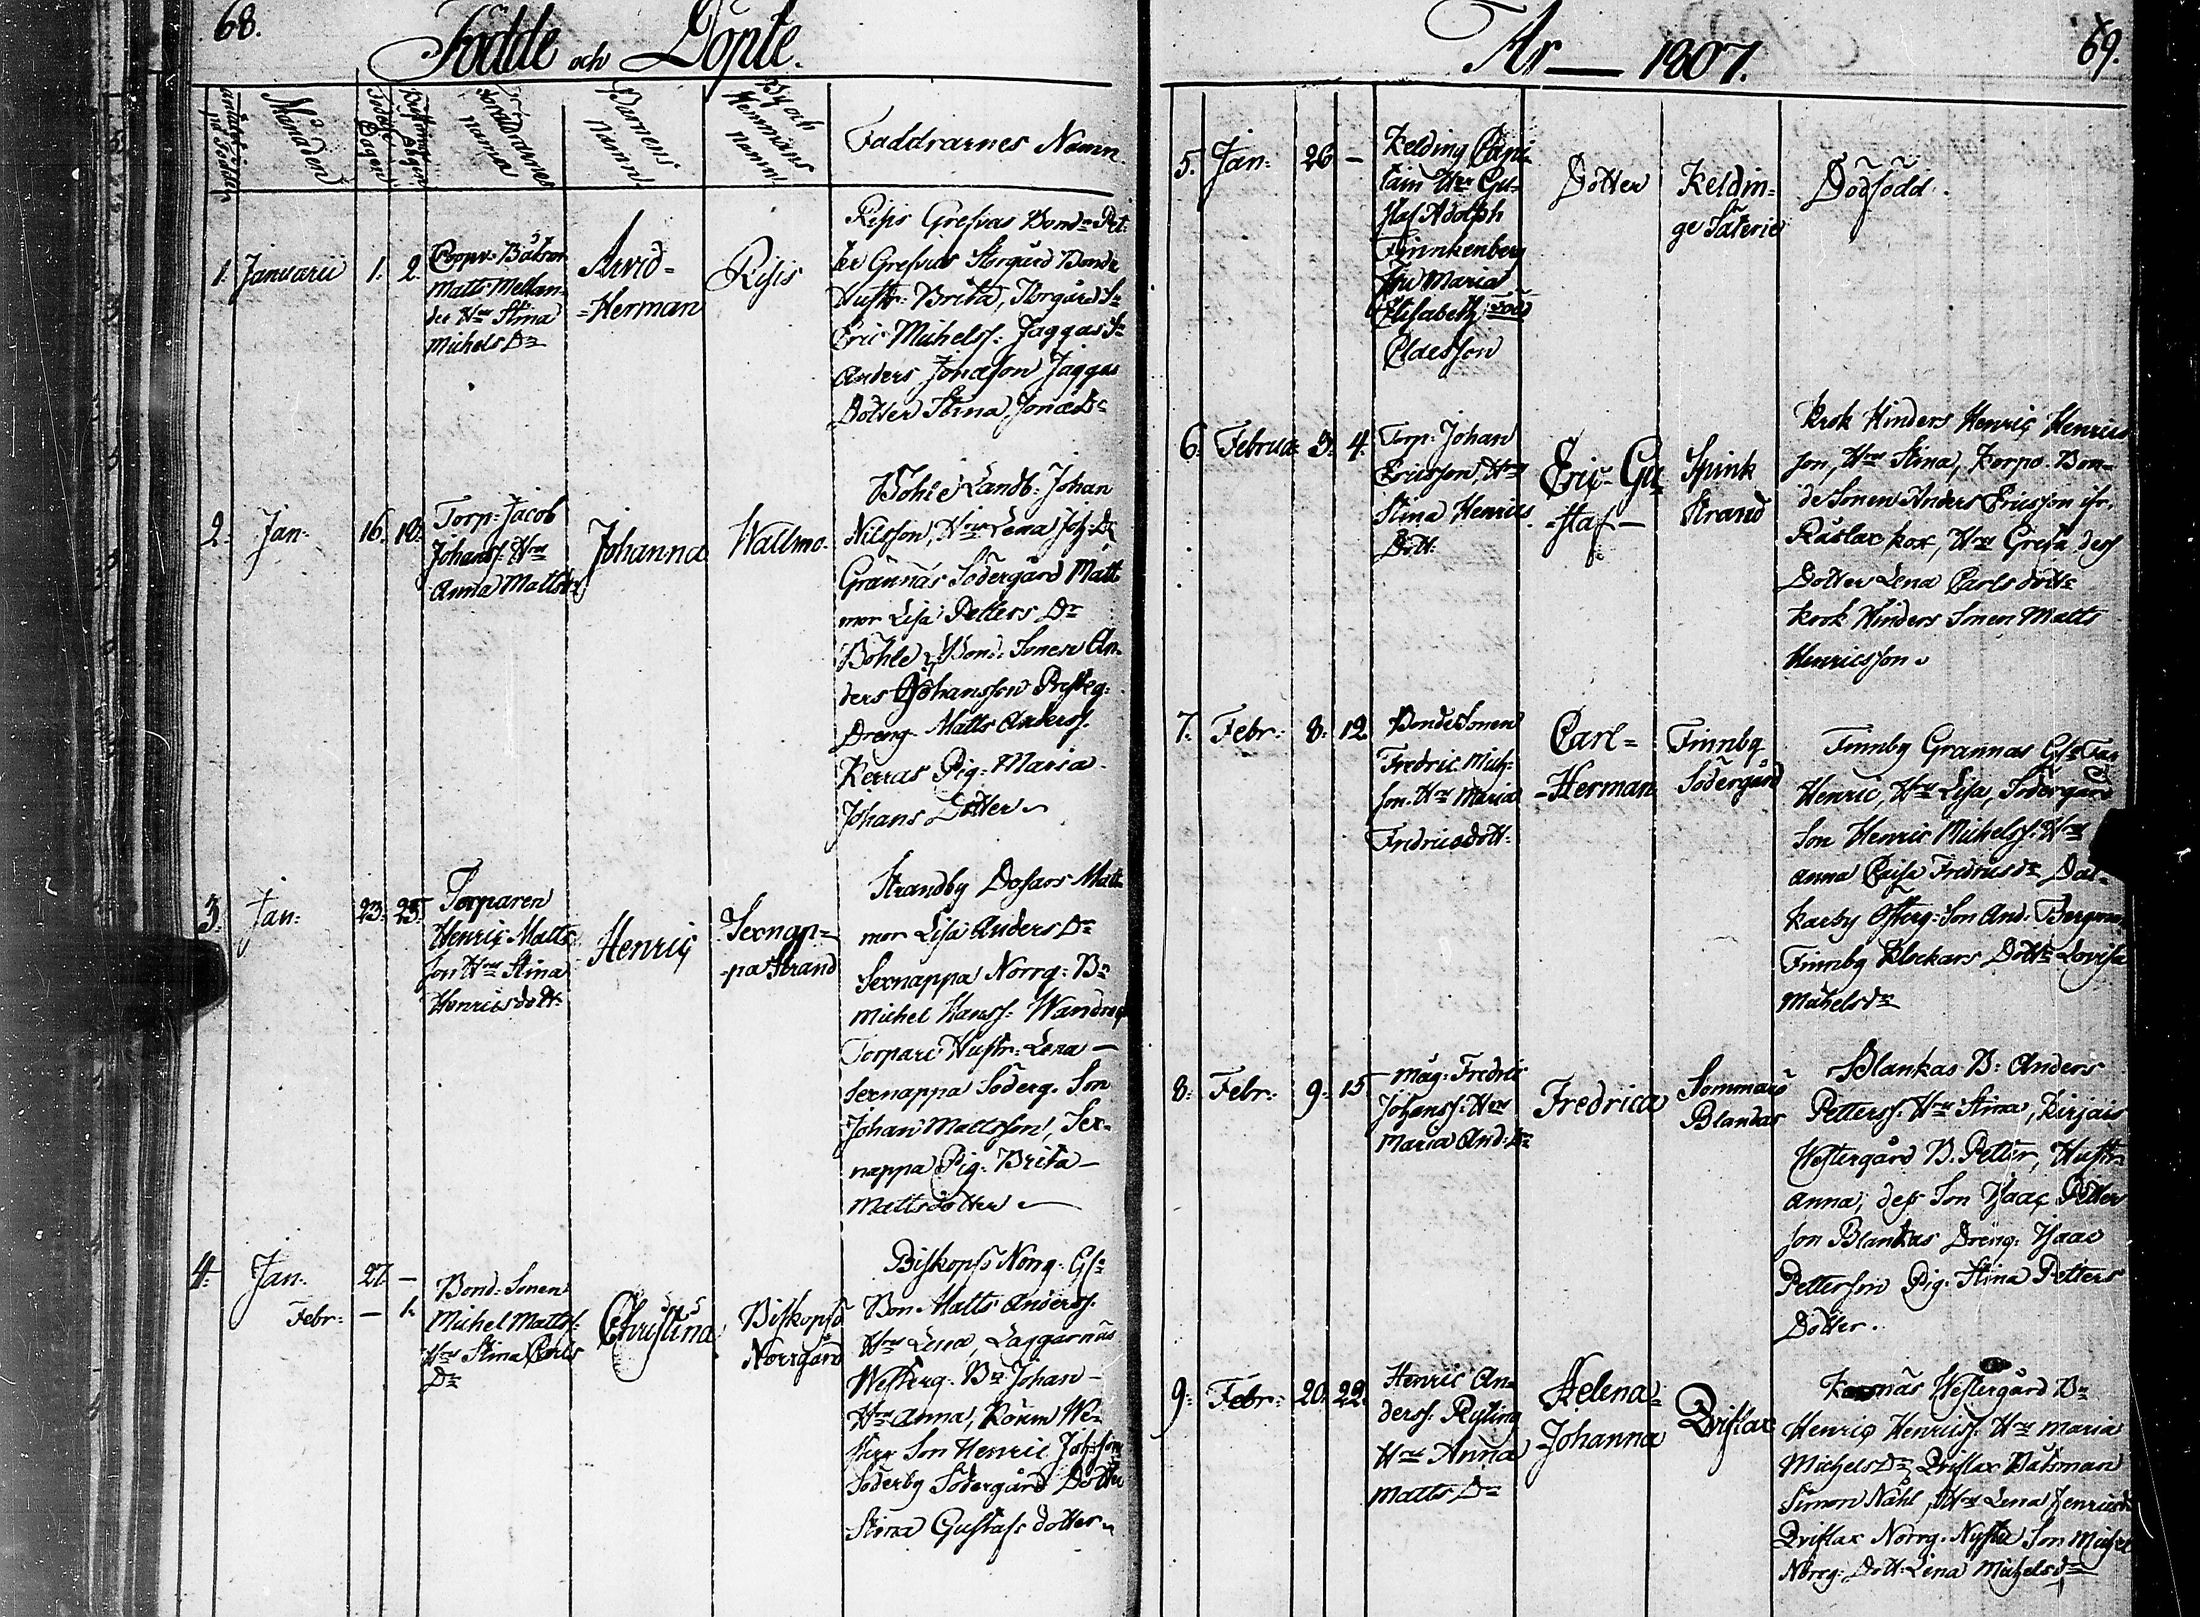 68.
Födde och Döpte.
Månaden
Födelse Dagen
Föräldrarnes namn
Barnens Namn
By och Hemmans namn
Faddrarnes Namn
1. Januarii 1. 2.
Båtsm
Matts Mellan-
der Hru Stina
Michels Dr
Arvid-
-Herman
Risis
Risis Grefvas Bond
ter Grefvas Storgård Bonde
Hustr: Brita, Storgård Sn
Eric Michelss: Jaggas Sn
Anders Jonasson Jaggas
Dotter Stina Jonæ Dr
2. Jan: 16. 18.
Torp: Jacob
Johanss. Hru
Anna Matts Dr
Johanna
Wallmo
Böhle Landb: Johan
Nilsson, Hru Lena Joh: Dr
Grannäs Södergård Matt
mor Lisa Petters Dr
Böhle Bond: Sonen An-
ders Johansson Presteg:
Dreng Matts Anderss.
Kerras Pig: Maria
Johans Dotter
3. Jan: 23. 25.
Torparen
Henric Matts
son Hru Stina
Henricsdott:
Henric
Sexnap-
-pa Strand
Strandby Dosaos Matt
mor Lisa Anders Dr
Sexnappa Norrg: Bn
Michel Hanss:
Torpare Hustr: Lena –
Sexnappa Söderg. Son
Johan Mattsson, Sex-
nappa Pig: Brita –
Mattsdotter
4. Jan: 27. –
Febr: – 1.
Bond: Sonen
Michel Mattss:
Hru Stina Carls
Dr
Christina
Biskopsö
Norrgård
Biskopsö Norrg. Gl:
Bon Matts Anderss.
Hru Lena, Laggarnäs
Westerg. Bn Johan –
Hru Anna, We-
Son Henric Johsson
Söderby Södergård Dotter
Stina Gustafs dotter
År — 1807.
69.
5. Jan: 26 –
Kelding Capi-
tain Hr Gu-
staf Adolph
Finnkenberg
Fru Maria
Elisabeth född
Claesson
Dotter
Keldin-
ge Säterie
Dödfödd.
6. Februa: 3. 4.
Torp: Johan
Ericsson, Hru
Stina Henrics
Dott:
Eric Gu-
-staf –
Spink
Strand
Krok Hinders Henric Henrics
son, Hru Stina, Korpo. Bon-
de Sonen Anders Ericsson ifr.
Hru Greta des
Dotter Lena Carls dottr
Krok Hinders Sonen Matts
Henricsson
7. Febr: 8. 12.
Bonde Sonen
Fredric Mich-
son. Hru Maria
Fredricsdott:
Carl-
-Herman
Finnby
Södergård
Finnby Grannas
Henric, Hru Lisa, Södergård
Son Henric Michelss. Hru
Anna Caisa Fredricsdr Dal-
karby Österg: Son And: Bergman
Finnby Klockars Dottr Lovisa
Michelsdr
8. Febr: 9. 15
Mag: Fredric
Johanss. Hru
Maria And: Dr
Fredrica
Sommarö
Blankas
Blankas B: Anders
Petterss. Hru Stina, Kirjais
Westergård B. Petter, Hustr:
Anna, dess Son Isaac Petters
son Blankas Dreng: Isaac
Petterson Pig. Stina Petters
Dotter.
9. Febr: 20. 22.
Henric An-
derss. Ryting
Hru Anna
Matts Dr
Helena-
-Johanna
Qviflax
Westergård Bn
Henric Henricss. Hru Maria
Michels Dr, Qviflax Båtsman
Simon Nåhl, Hru Lena Henricsdr
Qviflax Norrg. Nysta Son Michel
Norrg: Dott: Lena Michelsdr